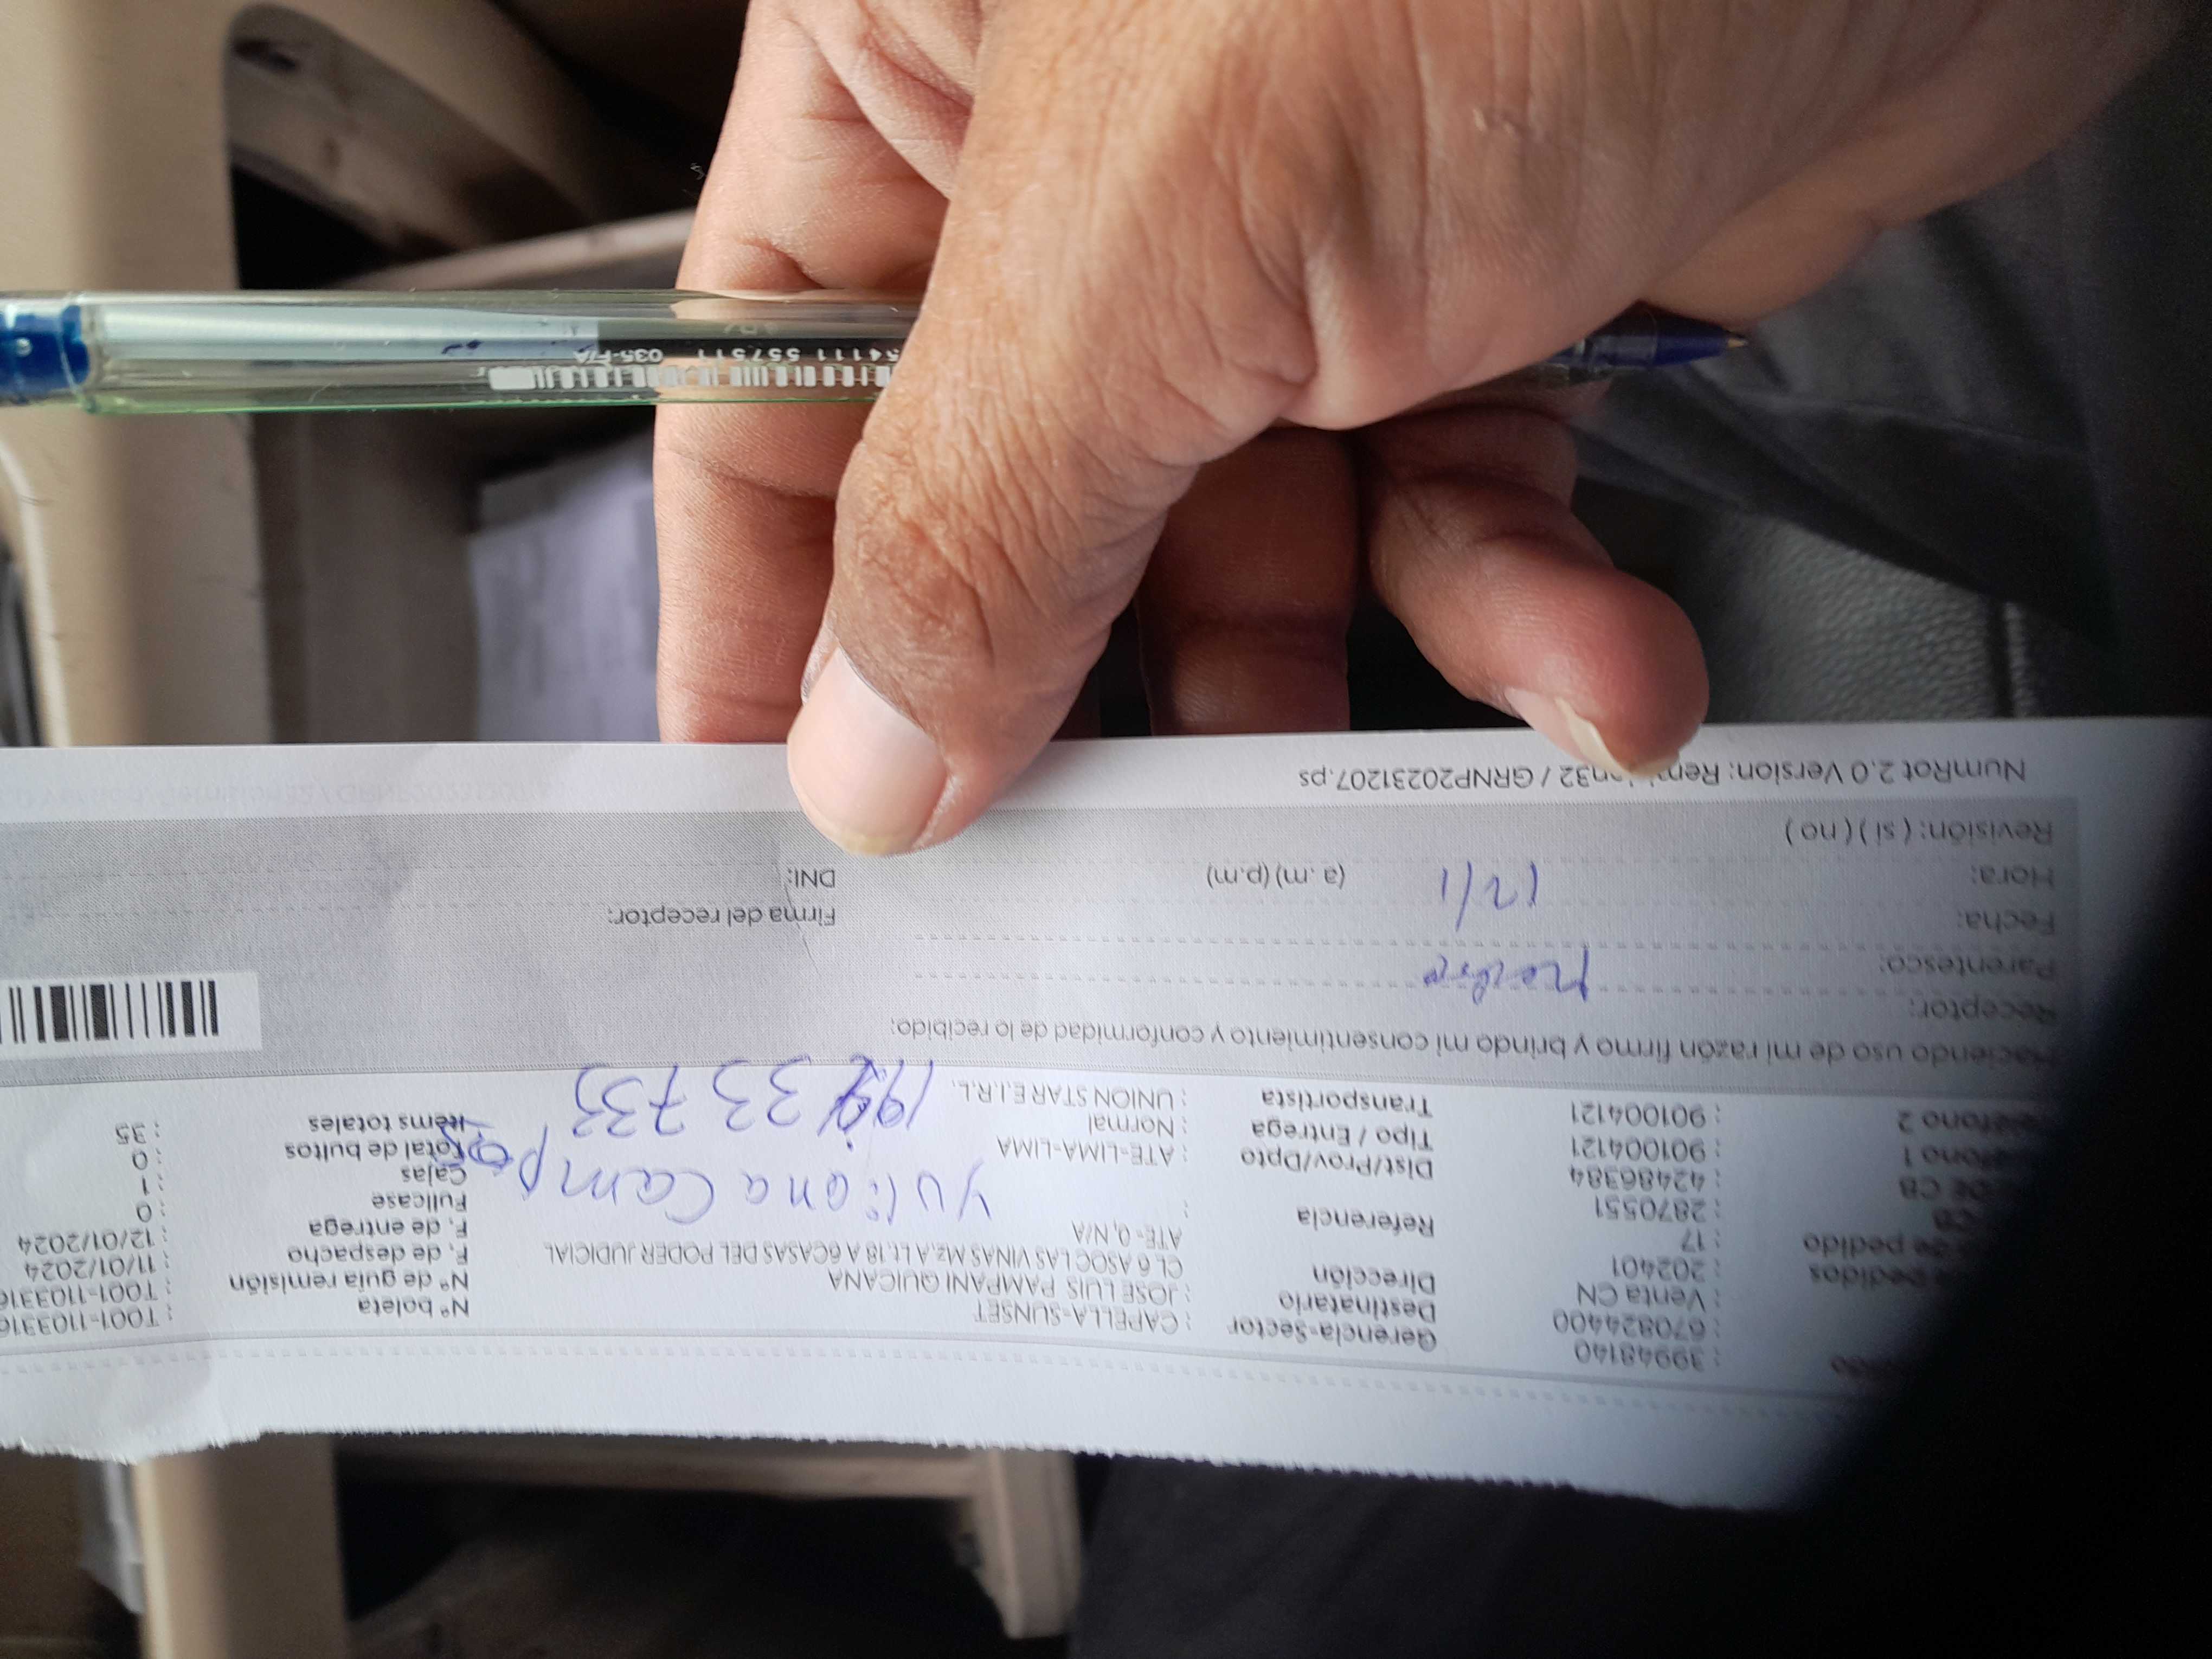 39948140
670824400
Venta CN
pedidos : 202401
de pedido : 17
CB : 2870551
DE CB : 42486384
Teléfono 1 : 901004121
Teléfono 2 : 901004121
Gerencia-Sector : CAPELLA-SUNSET
Destinatario : JOSE LUIS PAMPANI QUICANA
Dirección CL 6 ASOC LAS VINAS Mz.A Lt.18 A 6CASAS DEL PODER JUDICIAL
ATE- 0, N/A
Referencia :
Dist/Prov/Dpto : ATE-LIMA-LIMA
Tipo / Entrega : Normal
Transportista : UNION STAR E.I.R.L.
Yuliana Campos
33733
N° boleta : T001-1103316
N° de guía remisión : T001-1103316
F. de despacho : 11/01/2024
F. de entrega : 12/01/2024
Fullcase : 0
Cajas : 1
Total de bultos : 0
Items totales : 35
Haciendo uso de mi razón firmo y brindo mi consentimiento y conformidad de lo recibido:
Receptor:
Parentesco:
Fecha: 12/1
Hora: (a. m) (p.m)
Revisión: ( si ) ( no )
Firma del receptor:
DNI:
NumRot 2.0 Version: / GRNP20231207.ps
54111 557511 035-F/A